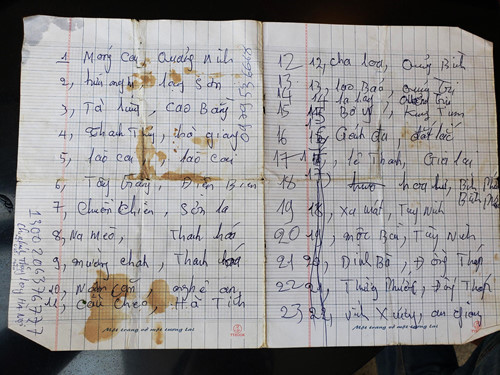 1 Móng Cái, Quảng Ninh
2, hữu nghị, lạng Sơn
3, Tà lùng, Cao Bằng
4, Thanh Thủy, hà giang
5, lào cai, lào cai
6, Tây trang, Điện Biên
7, Chiềng Khương, Sơn la
8, Na mèo, Thanh hoá
9, Thanh hoá
10, Nậm cắn, nghệ an
11, cầu treo, Hà Tĩnh
Một trang vở một tương lai
12 12, cha lo, Quảng Bình
13 13, lao Bảo, quảng Trị
14 14 la lay, quảng trị
15 15 Bờ Y, Kon Tum
16 16,
17 17, lệ Thanh, Gia lai
18 hoa lư, Bình Phước
19 18, Xa mát, Tây Ninh
20 19, mộc Bài, Tây Ninh
21 20, Dinh Bà, Đồng Tháp
22 21, Thường Phước, Đồng Tháp
23 22, vĩnh Xương, an giang
Một trang vở một tương lai